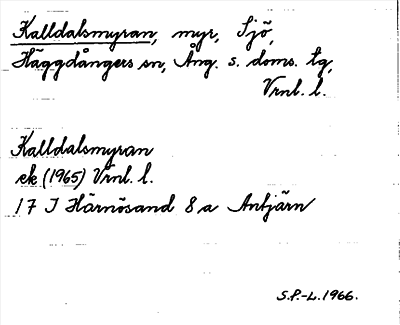 Kalldalsmyran, myr, Sjö,
Häggdångers sn, Ång. s. doms. tg,
Vrnl. l.
Kalldalsmyran
ek (1965) Vrnl. l.
17 I Härnösand 8 a Antjärn
S.P.-L. 1966.